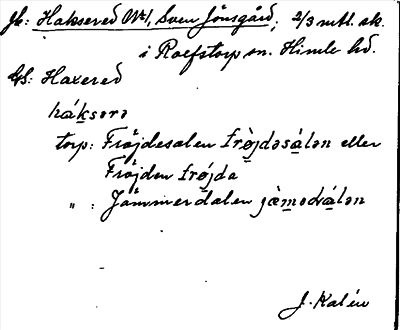 Jb: Haksered Nr 1, Sven Jönsgård; 2/3 mtl. sk.
i Rolfstorp sn. Himle hd.
Gs: Haxered
hákserə
torp: Fröjdesalen frö̀jdəsálən eller
Fröjden frö́jda
" : Jämmerdalen jæ̀mədálən
J. Kalén